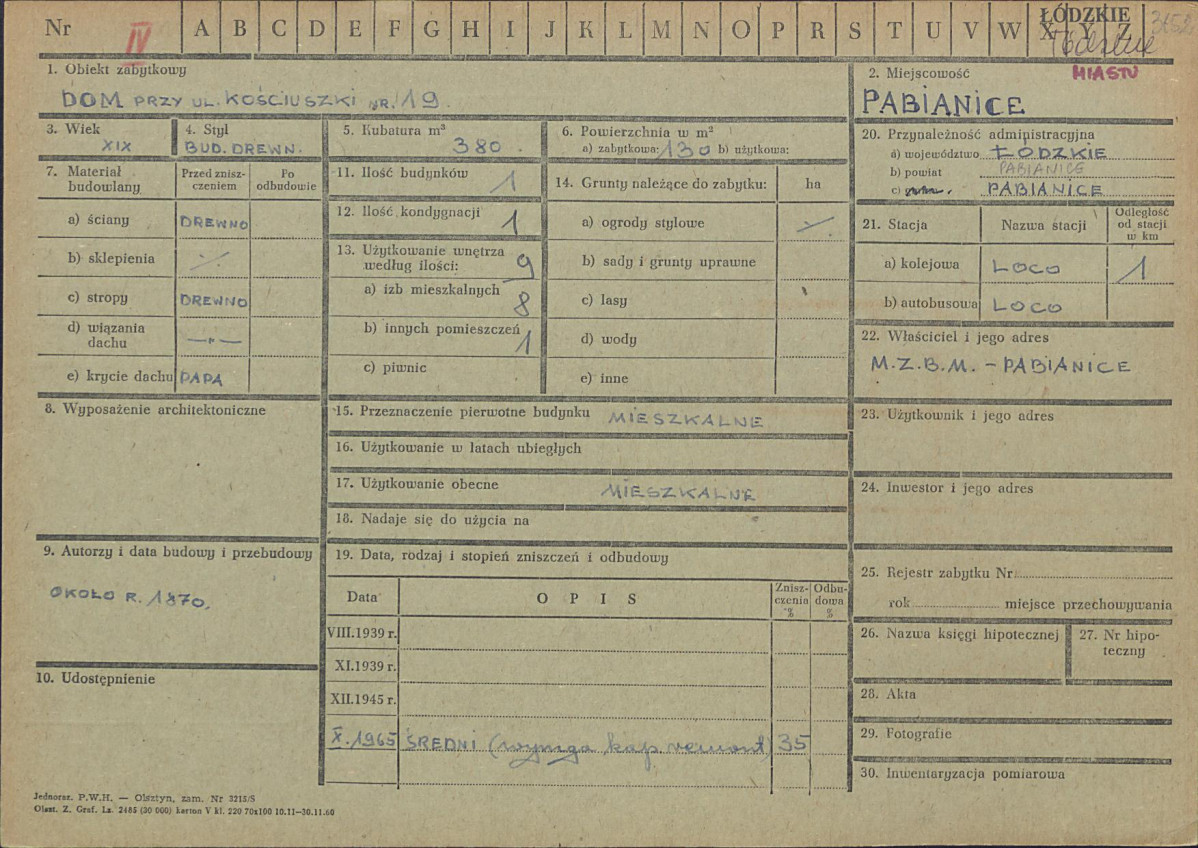 Nr IV A B C D E F G H I J K L M N O P R S T U V W X Y Z
ŁÓDZKIE
MIASTO
1. Obiekt zabytkowy
DOM PRZY UL. KOŚCIUSZKI NR. 19.
2. Miejscowość
PABIANICE
3. Wiek
XIX
4. Styl
BUD. DREWN.
5. Kubatura m³
380.
6. Powierzchnia w m²
a) zabytkowa: 130 b) użytkowa:
7. Materiał budowlany
Przed zniszczeniem
Po odbudowie
a) ściany DREWNO
b) sklepienia ·/·
c) stropy DREWNO
d) wiązania dachu —„—
e) krycie dachu PAPA
8. Wyposażenie architektoniczne
9. Autorzy i data budowy i przebudowy
OKOŁO R. 1870.
10. Udostępnienie
11. Ilość budynków 1
12. Ilość kondygnacji 1
13. Użytkowanie wnętrza według ilości: 9
a) izb mieszkalnych 8
b) innych pomieszczeń 1
c) piwnic
14. Grunty należące do zabytku: ha
a) ogrody stylowe ·/·
b) sady i grunty uprawne
c) lasy
d) wody
e) inne
15. Przeznaczenie pierwotne budynku MIESZKALNE
16. Użytkowanie w latach ubiegłych
17. Użytkowanie obecne MIESZKALNE
18. Nadaje się do użycia na
19. Data, rodzaj i stopień zniszczeń i odbudowy
Data O P I S Zniszczenia % Odbudowa %
VIII.1939 r.
XI.1939 r.
XII.1945 r.
X.1965 ŚREDNI (wymaga kap. remont) 35
20. Przynależność administracyjna
a) województwo ŁÓDZKIE
b) powiat PABIANICE
c) PABIANICE
21. Stacja Nazwa stacji Odległość od stacji w km
a) kolejowa LOCO 1
b) autobusowa LOCO
22. Właściciel i jego adres
M.Z.B.M. - PABIANICE
23. Użytkownik i jego adres
24. Inwestor i jego adres
25. Rejestr zabytku Nr
rok miejsce przechowywania
26. Nazwa księgi hipotecznej
27. Nr hipoteczny
28. Akta
29. Fotografie
30. Inwentaryzacja pomiarowa
Jednoraz. P.W.H. — Olsztyn, zam. Nr 3215/S
Olszt. Z. Graf. Ls. 2485 (30 000) karton V kl. 220 70x100 10.11—30.11.60